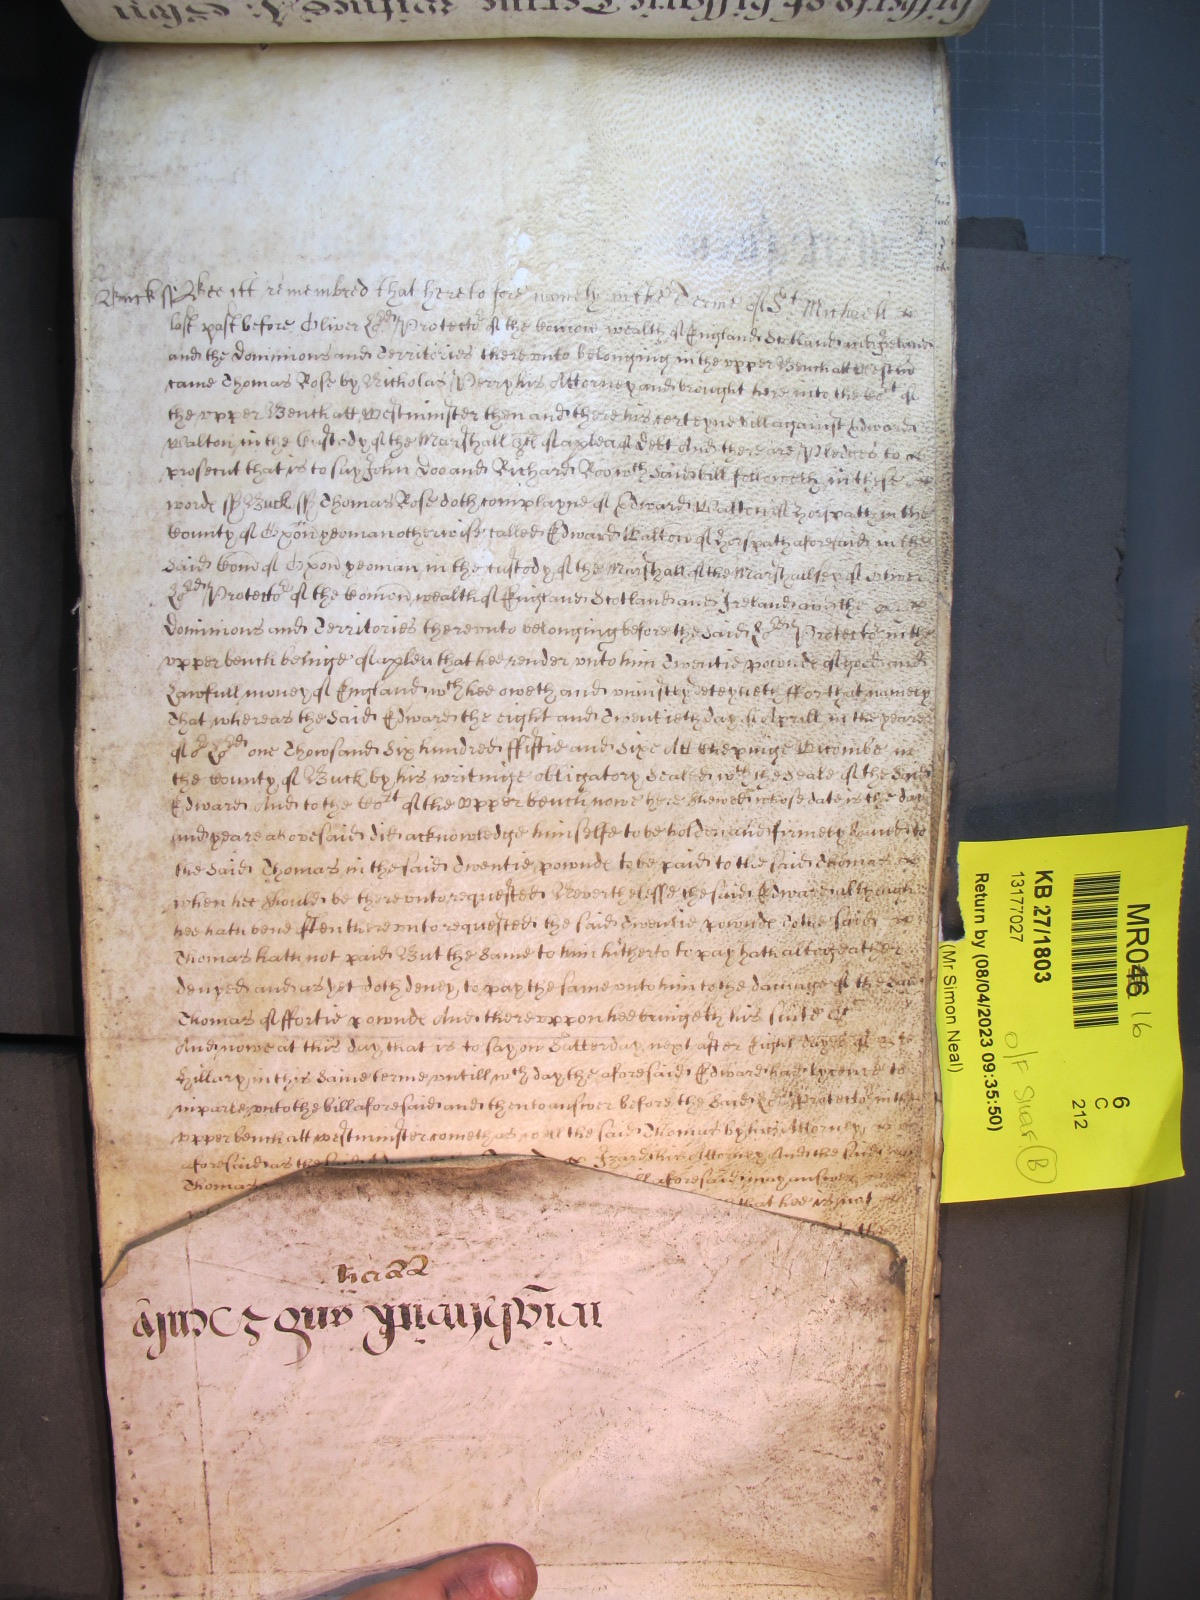 Buck ss Bee itt remembred that heretofore namely in the Terme of St. Michaell
last past before Oliver Lord Protector of the Comon wealth of England Scotland and Ireland
and the Dominions and Territories thereunto belonging in the upper Bench att Westmr
came Thomas Rose by Nicholas Perry his Attorney and brought here into the Cort of
the upper Bench att Westminster then and there his certeyne bill against Edward
Walton in the Custody of the Marshall &c of a plea of debt And there are Pledges to
prosecut that is to say John Doo and Richard Roo wch said bill followeth in these
words ss Buck ss Thomas Rose doth complayne of Edward Walton of Horspath in the
County of Oxon yeoman otherwise called Edward Walton of Horspath aforesaid in the
said Com of Oxon yeoman in the custody of the Marshall of the Marshallsey of Oliver
Lord Protector of the Comon wealth of England Scotland and Ireland and the
Dominions and Territories thereunto belonging before the said Lord Protector in the
upper bench beinge of a plea that hee render unto him Twentie pounds of good and
Lawfull money of England wch hee oweth and uniustly deteyneth ffor that namely
that whereas the said Edward the eight and Twentieth day of Aprill in the yeare
of or Lord one Thowsand Six hundred ffiftie and Sixe Att Cheppinge Wicombe in
the County of Buck by his writinge obligatory Sealed wth the Seale of the said
Edward And to the Cort of the upper bench nowe here shewed whose date is the day
and yeare abovesaid did acknowledge himselfe to be holden and firmely bound to
the said Thomas in the said Twentie pownds to be paid to the said Thomas
when hee should be thereunto requested Neverthelesse the said Edward although
hee hath bene often thereunto requested the said Twentie pownds to the said
Thomas hath not paid But the same to him hitherto to pay hath altogeather
denyed and as yet doth deney to pay the same unto him to the damage of the said
Thomas of ffortie pownds And thereuppon hee bringeth his suite &c
And nowe at this day that is to say on Satterday next after Eight dayes of
Hillary in this same terme untill wch day the aforesaid Edward had lycence to
imparle unto the bill aforesaid and then to answer before the said Lord Protector in the
upper bench att Westminster cometh as well the said Thomas by his Attorney
aforesaid as the said Izard his Attorney And the said
Thomas bill aforesaid may answer
that hee is not
the
MR046 16
KB 27/1803
13177027
Return by (08/04/2023 09:35:50)
(Mr Simon Neal)
6
C
212
O/F
B